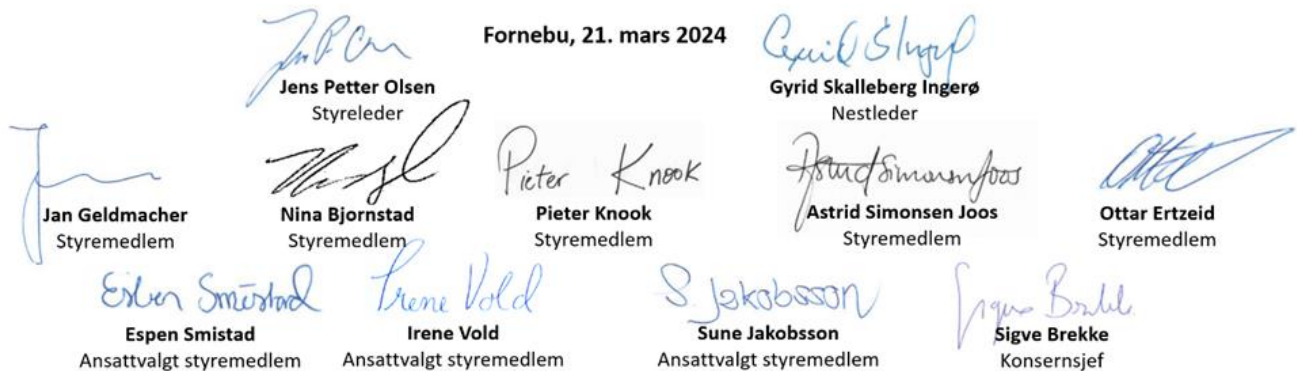 Fornebu, 21. mars 2024
Jens Petter Olsen
Styreleder
Gyrid Skalleberg Ingerø
Nestleder
Jan Geldmacher
Styremedlem
Nina Bjornstad
Styremedlem
Pieter Knook
Pieter Knook
Styremedlem
Astrid Simonsen Joos
Astrid Simonsen Joos
Styremedlem
Ottar Ertzeid
Styremedlem
Espen Smistad
Espen Smistad
Ansattvalgt styremedlem
Irene Vold
Irene Vold
Ansattvalgt styremedlem
S. Jakobsson
Sune Jakobsson
Ansattvalgt styremedlem
Sigve Brekke
Konsernsjef